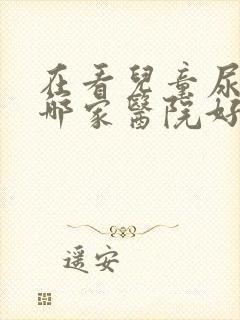 在看兒童尿
哪家醫院好
遥安